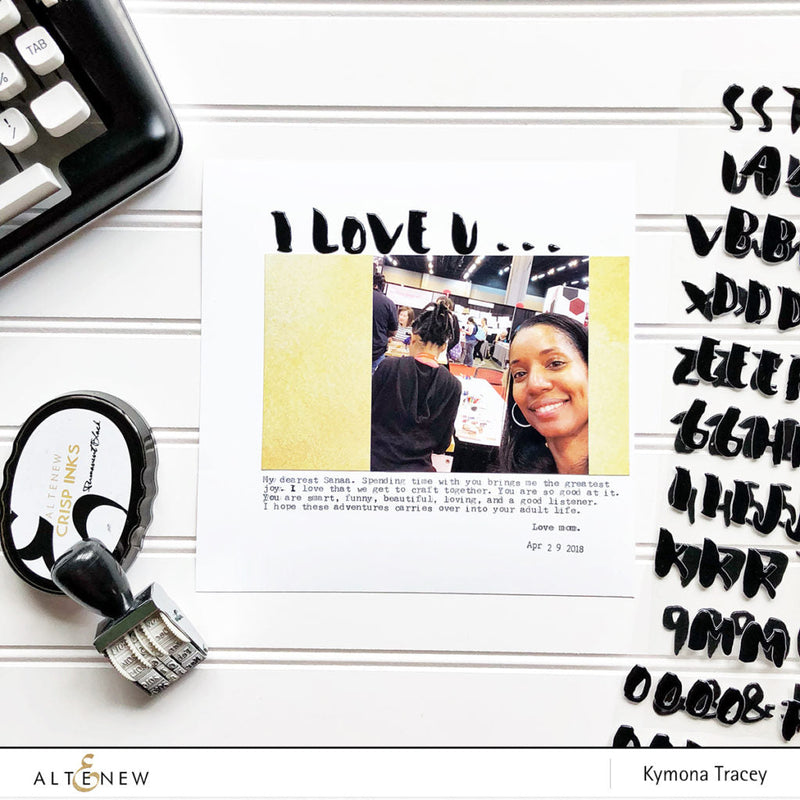 TAB
%
!
/
SST
UAU
VBB
XDDD
ZEEE
66HH
HHJJ
KKRR
9MMM
00008&
I LOVE U ...
My dearest Sanaa. Spending time with you brings me the greatest
joy. I love that we get to craft together. You are so good at it.
You are smart, funny, beautiful, loving, and a good listener.
I hope these adventures carries over into your adult life.
Love mom.
Apr 29 2018
ALTENEW
CRISP INKS
Permanent Black
ALTENEW
Kymona Tracey